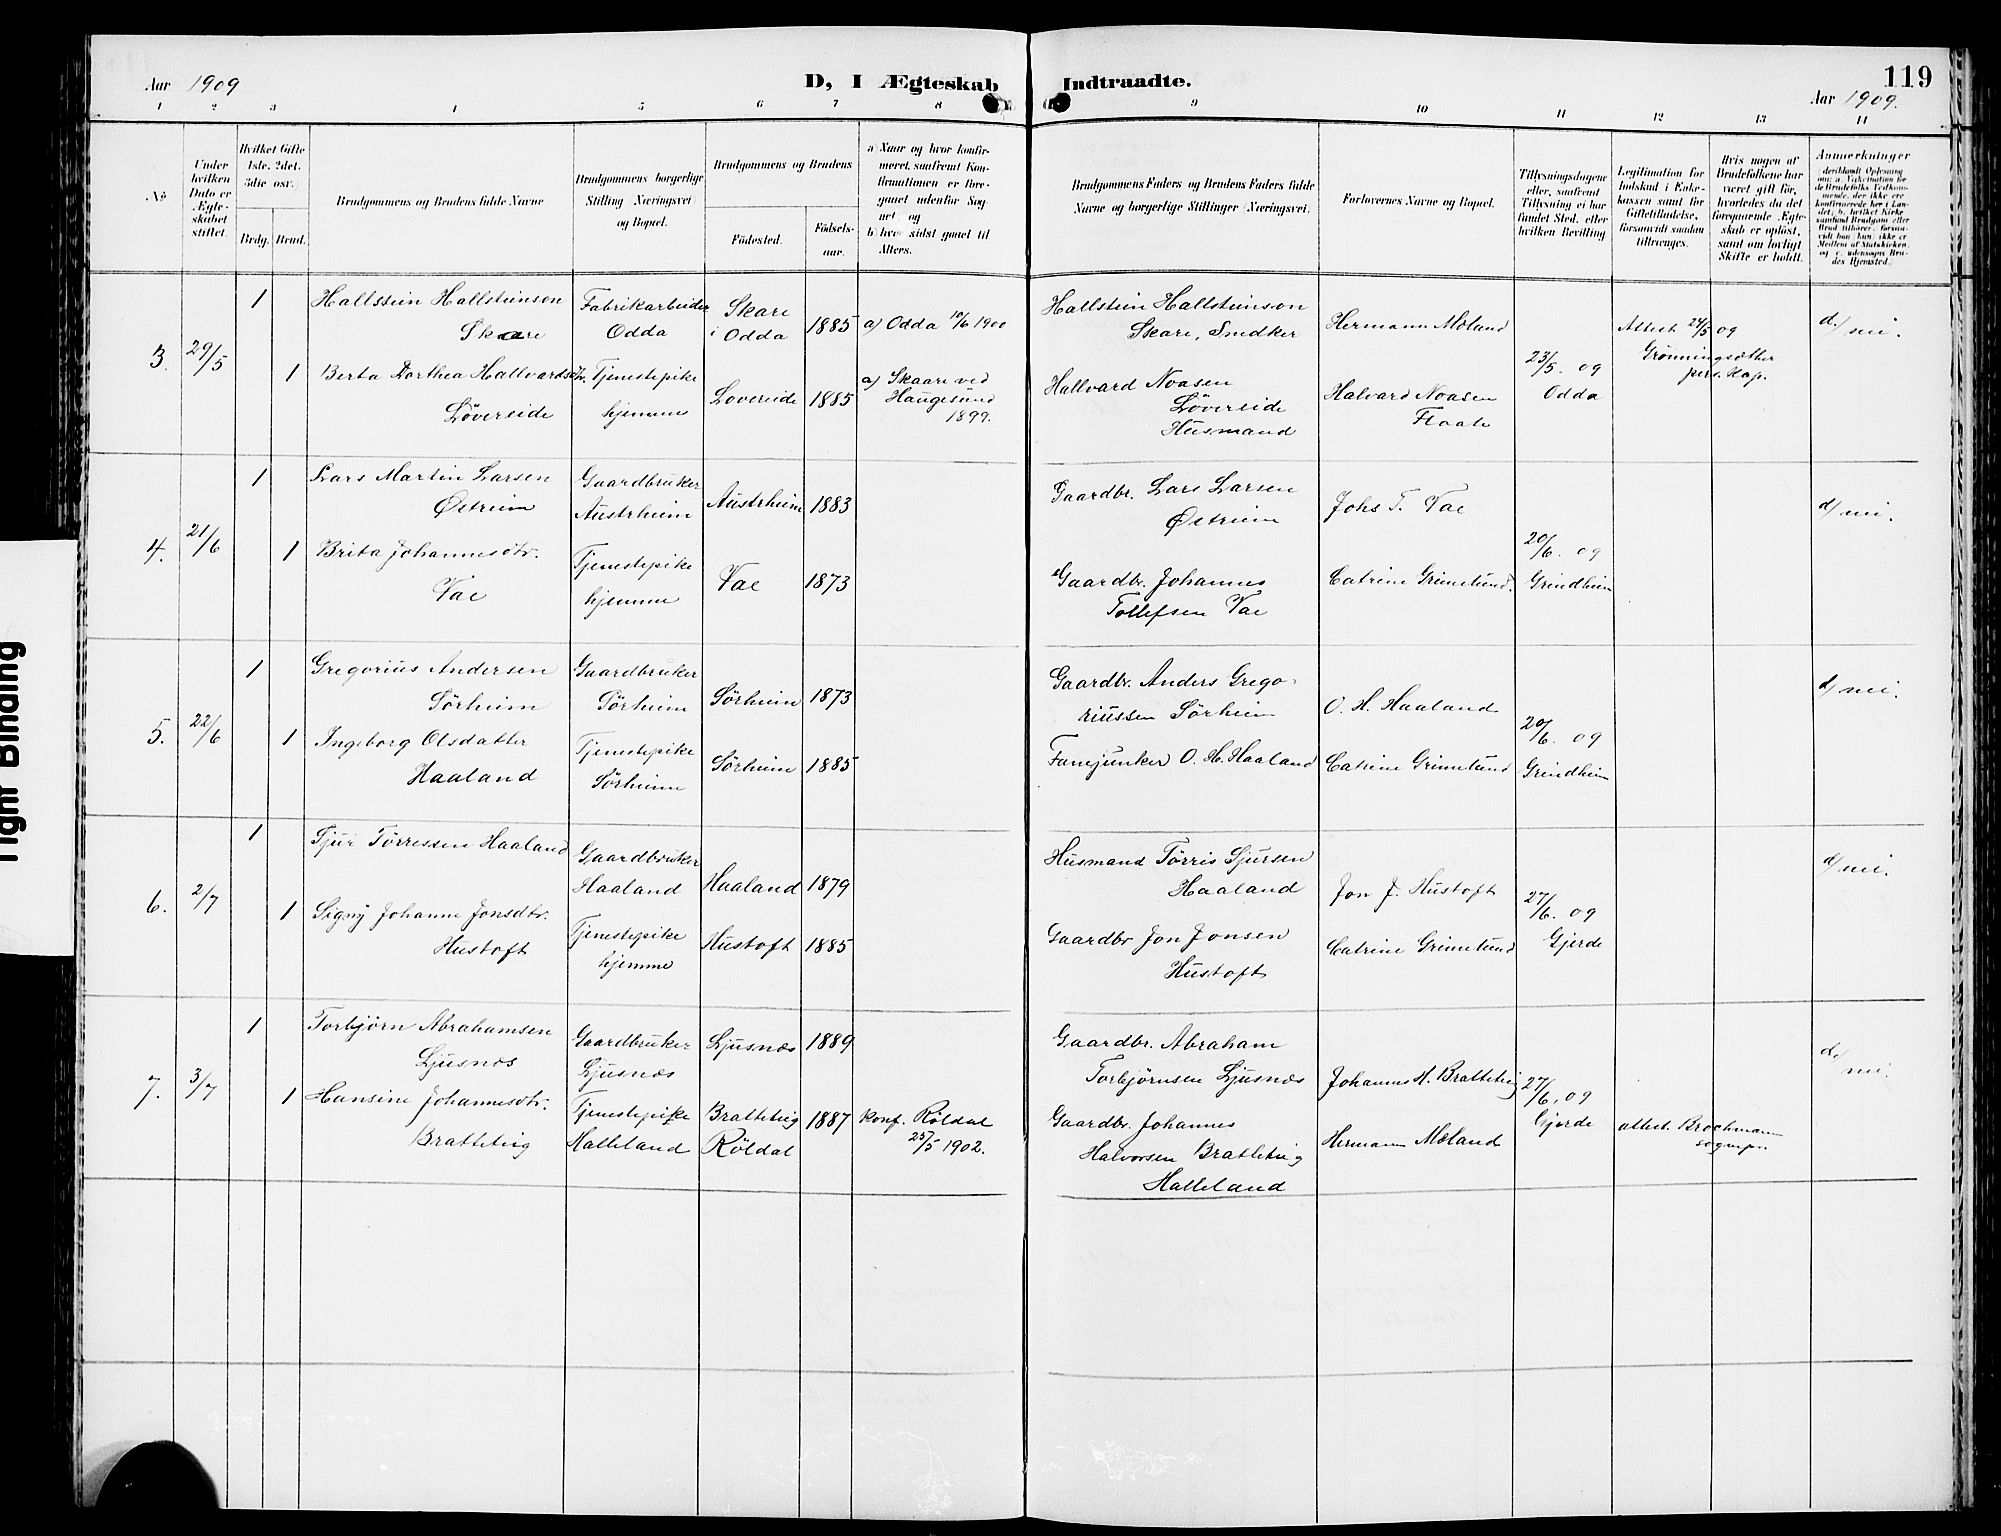 Aar 1909
D, I Ægteskab Indtraadte.
119
Aar 1909.
1 2 3 4 5 6 7 8 9 10 11 12 13 14
No
Under hvilken Dato er Ægteskabet stiftet.
Hvilket Gifte 1ste, 2det, 3die osv.
Brdg. Brud.
Brudgommens og Brudens fulde Navne
Brudgommens borgerlige Stilling (Næringsvei) og Bopæl.
Brudgommens og Brudens
Födested.
Födselsaar.
a) Naar og hvor konfirmeret, saafremt Konfirmationen er foregaaet udenfor Sognet, og
b) hvo sidst gaaet til Alters.
Brudgommens Faders og Brudens Faders fulde Navne og borgerlige Stillinger (Næringsvei.
Forlovernes Navne og Bopæl.
Tillysningsdagene eller, saafremt Tillysning ei har fundet Sted, efter hvilken Bevilling
Legitimation for Indskud i Enkekassen samt for Giftetilladelse, forsaavidt saadan tiltrænges.
Hvis nogen af Brudefolkene har været gift før, hvorledes da det foregaaende Ægteskab er opløst, samt om lovligt Skifte er holdt.
Anmerkninger
3. 29/5 1
Hallstein Hallsteinson
Skaare
Fabrikarbeider
Odda
Skare
i Odda
1885
a) Odda 10/6 1900
Hallstein Hallsteinson
Skare, Snedker
Hermann Mæland
23/5. 09
Odda
Attest 24/5 09
Grønningsæther
pers. Kap.
d./ nei.
1
Berta Dorthea Hallvardsdtr.
Lövereide
Tjenestepike
hjemme
Lovereide
1885
a) Skaare ved
Haugesund
1899.
Hallvard Noasen
Lövereide
Husmand
Halvard Noasen
Flaate
4. 21/6 1
Lars Martin Larsen
Østreim
Gaardbruker
Austrheim
Austrheim
1883
Gaardbr. Lars Larsen
Østreim
Johs T. Vae
20/6. 09
Grindheim
d/ nei.
1
Brita Johannesdtr.
Vae
Tjenestepike
hjemme
Vae
1873
Gaardbr. Johannes
Tollefsen Vae
Catrine Grimelund.
5. 22/6 1
Gregorius Andersen
Sørheim
Gaardbruker
Sörheim
Sørheim
1873
Gaardbr. Anders Grego-
riussen Sørheim
O. H. Haaland
20/6. 09
Grindheim
d/ nei.
1
Ingeborg Olsdatter
Haaland
Tjenestepike
Sørheim
Sørheim
1885
Fanejunker O. H. Haaland
Catrine Grimelund
6. 2/7 1
Sjur Tørressen Haaland
Gaardbruker
Haaland
Haaland
1879
Husmand Tørris Sjursen
Haaland
Jon J. Hustoft
27/6. 09
Gjerde
d/ nei.
1
Signy Johanne Jonsdtr.
Hustoft
Tjenestepike
hjemme
Hustoft
1885
Gaardbr Jon Jonsen
Hustoft
Catrine Grimelund
7. 3/7 1
Torbjörn Abrahamsen
Ljusnes
Gaardbruker
Ljusnæs
Ljusnæs
1889
Gaardbr. Abraham
Torbjörnsen Ljusnæs
Johannes H. Bratteteig
27/6. 09
Gjerde
attest. Brochmann
sognepr.
d./ nei.
1
Hansine Johannesdtr.
Bratteteig
Tjenestepike
Halleland
Bratteteig
Röldal
1887
Konf. Röldal
25/5 1902.
Gaardbr. Johannes
Halvorsen Bratteteig
Halleland
Hermann Mæland
Tight Binding